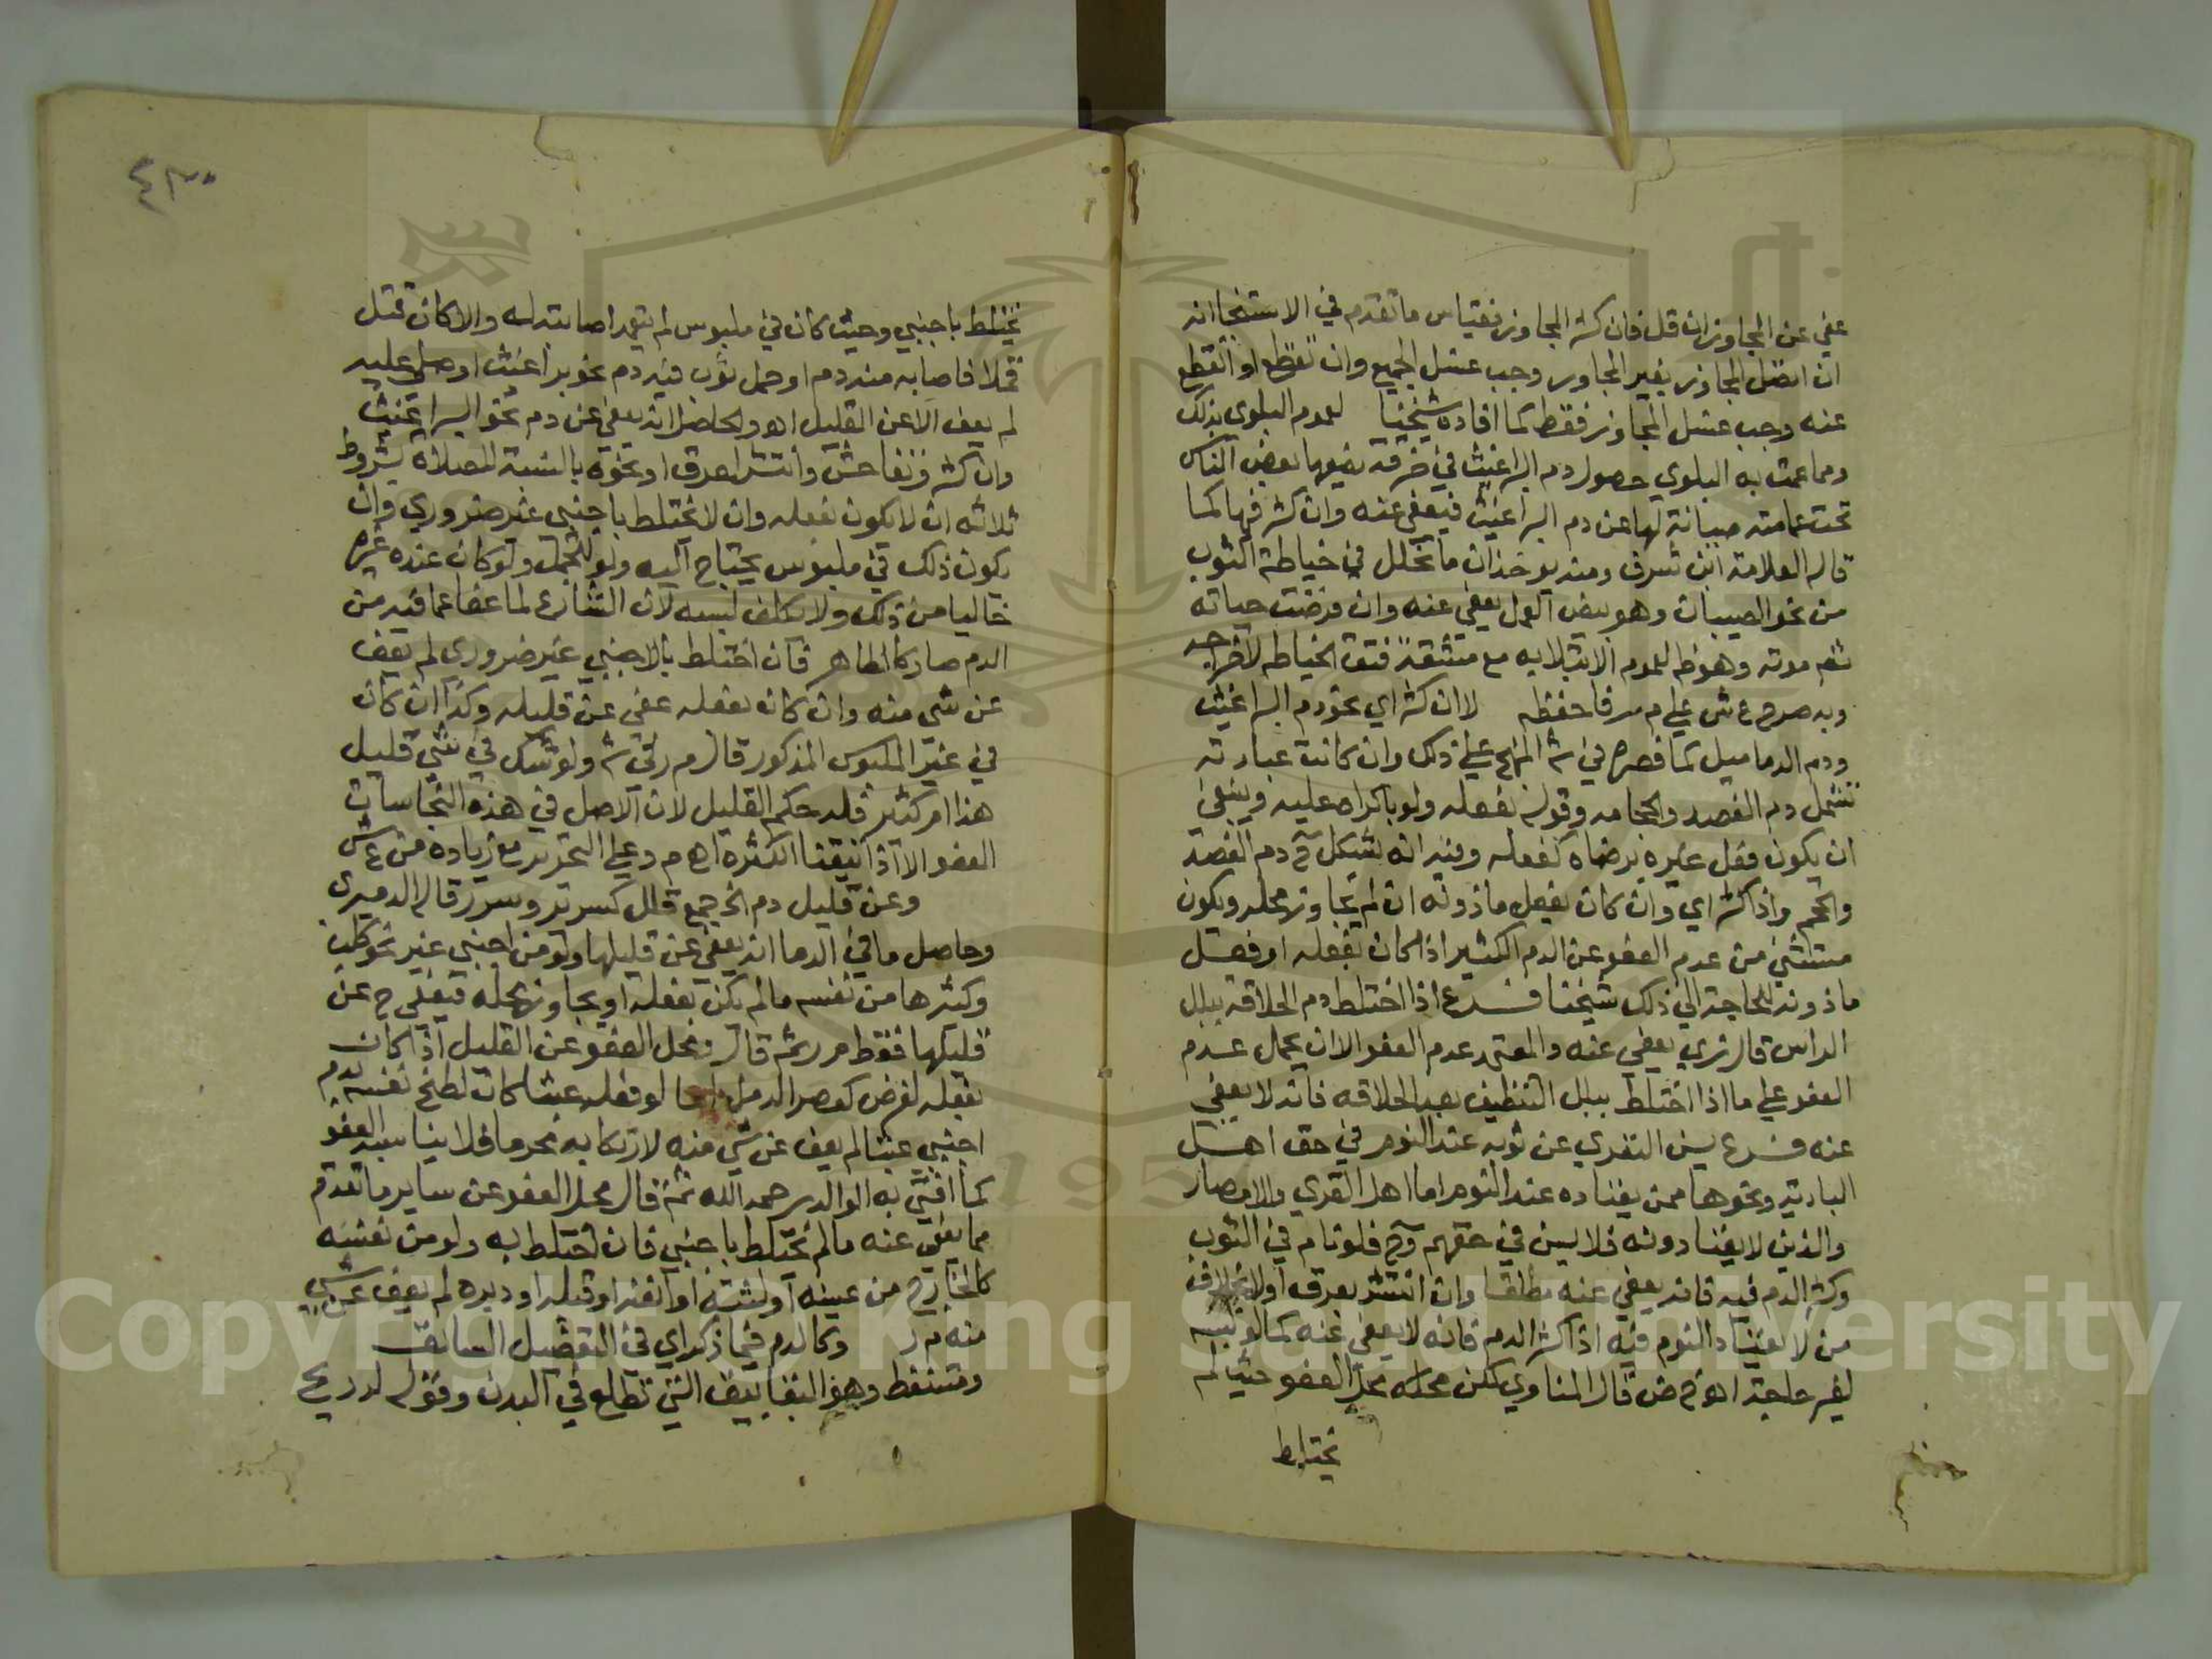 عفي عن المجاوز ان قل فان كثر المجاوز فقياس ما تقدم في الاستنجا انه
ان اتصل المجاوز بغير المجاوز وجب غسل الجميع وان تقطع او انقطع
عنه وجب غسل المجاوز فقط كما افاده شيخنا لعدم البلوي بذلك
ومما عمت به البلوي حصول دم البراغيث في خرقة يضعها بعض الناس
تحت عمامته صيانة لها عن دم البراغيث فيعفي عنه وان كثر فيها كما
قاله العلامة ابن شرف ومنه يوخذ ان ما تخلل في خياطة الثوب
من نحو الصيبان وهو بيض القمل يعفي عنه وان فرضت حياته
ثم موته وهو ظ لعموم الابتلا به مع مشقة فتق الخياطه لاخراجه
وبه صرح ع ش علي م ر فاحفظه لا ان كثر اي نحو دم البراغيث
ودم الدماميل كما قصره في ش المنهج علي ذلك وان كانت عبارته
تشمل دم الفصد والحجامه وقوله بفعله ولو باكراه عليه وينبغي
ان يكون فعل غيره برضاه كفعله وفيه انه يشكل ح دم الفصد
والحجم واذا كثر اي وان كان بفعل ماذونه ان لم يجاوز محله ويكون
مستثني من عدم العفو عن الدم الكثير اذا كان بفعله او فعل
ماذونه للحاجة الي ذلك شيخنا فرع اذا اختلط دم الحلاقة ببلل
الراس قال زي يعفي عنه والمعتمد عدم العفو الا ان يحمل عدم
العفو علي ما اذا اختلط ببلل التنظيف بعد الحلاقه فانه لا يعفي
عنه فرع يسن التعري عن ثوبه عند النوم في حق اهل
البادية ونحوها ممن يعتاده عند النوم اما اهل القري والامصار
والذين لا يعتادونه فلا يسن في حقهم وح فلو نام في الثوب
وكثر الدم فيه فانه يعفي عنه مطلقا وان انتشر بعرق او لا بخلاف
من لا يعتاد النوم فيه اذا كثر الدم فانه لا يعفي عنه كما لو لبسه
لغير حاجة اهـ ح ض قال المناوي لكن محله محل العفو حيث لم
يختلط
٤٣٠
يختلط باجنبي وحيث كان في ملبوس لم يتعمد اصابته له والا كان قتل
قملا فاصابه منه دم او حمل ثوب فيه دم نحو براغيث او صلي عليه
لم يعف الا عن القليل اهـ والحاصل انه يعفي عن دم نحو البراغيث
وان كثر وتفاحش وانتشر لعرق او نحوه بالنسبة للصلاه بشروط
ثلاثه ان لا يكون بفعله وان لا يختلط باجنبي غير ضروري وان
يكون ذلك في ملبوس يحتاج اليه ولو للتجمل ولو كان عنده غيره
خاليا من ذلك ولا يكلف لبسه لان الشارع لما عفا عما فيه من
الدم صار كالطاهر فان اختلط بالاجنبي غير ضروري لم يعف
عن شي منه وان كان بفعله عفي عن قليله وكذا ان كان
في غير الملبوس المذكور قال م ر في ش ولو شك في شي قليل
هذا ام كثير فله حكم القليل لان الاصل في هذه النجاسات
العفو الا اذا تيقنا الكثرة اهـ م د علي التحرير مع زيادة من ع ش
وعن قليل دم الخ جمع قال كسرير وسرر قال الدميري
وحاصل ما في الدما انه يعفي عن قليلها ولو من اجنبي غير نحو كلب
وكثيرها من نفسه ما لم يكن بفعله او يجاوز محله فيعفي ح عن
قليلها فقط م ر ثم قال ومحل العفو عن القليل اذا كان
بفعله لغرض كعصر الدمل اما لو فعله عبثا كان لطخ نفسه بدم
اجنبي عبثا لم يعف عن شي منه لارتكابه محرما فلا يناسبه العفو
كما افتي به الوالد رحمه الله ثم قال محل العفو عن ساير ما تقدم
مما يعفي عنه ما لم يختلط باجنبي فان اختلط به ولو من نفسه
كالخارج من عينه او لثته او انفه او قبله او دبره لم يعف عن شي
منه م ر وكالدم فيما ذكر اي في التفصيل السابق
ومتنفط وهو البقابيق التي تطلع في البدن وقوله له ريح
Copyright © King Saud University
1957